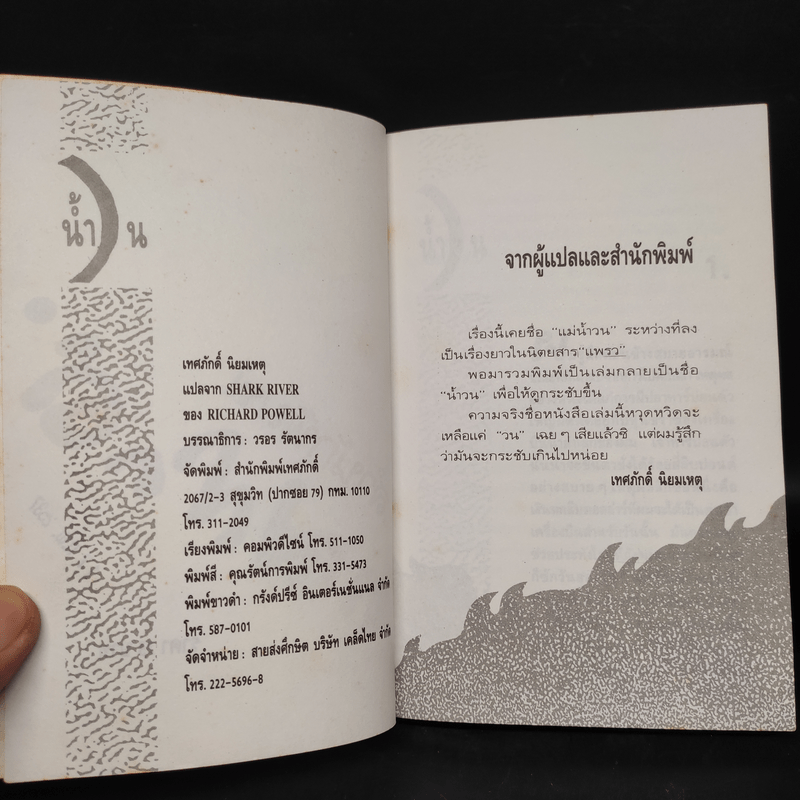 น้ำวน
เทศภักดิ์ นิยมเหตุ
แปลจาก SHARK RIVER
ของ RICHARD POWELL
บรรณาธิการ : วรอร รัตนากร
จัดพิมพ์ : สำนักพิมพ์เทศภักดิ์
2067/2-3 สุขุมวิท (ปากซอย 79) กทม. 10110
โทร. 311-2049
เรียงพิมพ์ : คอมพิวดีไซน์ โทร. 511-1050
พิมพ์สี : คุณรัตน์การพิมพ์ โทร. 331-5473
พิมพ์ขาวดำ : กรังด์ปรีซ์ อินเตอร์เนชั่นแนล จำกัด
โทร. 587-0101
จัดจำหน่าย : สายส่งศึกษิต บริษัท เคล็ดไทย จำกัด
โทร. 222-5696-8
จากผู้แปลและสำนักพิมพ์
เรื่องนี้เคยชื่อ "แม่น้ำวน" ระหว่างที่ลง
เป็นเรื่องยาวในนิตยสาร"แพรว"
พอมารวมพิมพ์เป็นเล่มกลายเป็นชื่อ
"น้ำวน" เพื่อให้ดูกระชับขึ้น
ความจริงชื่อหนังสือเล่มนี้หวุดหวิดจะ
เหลือแค่ "วน" เฉยๆ เสียแล้วซิ แต่ผมรู้สึก
ว่ามันจะกระชับเกินไปหน่อย
เทศภักดิ์ นิยมเหตุ